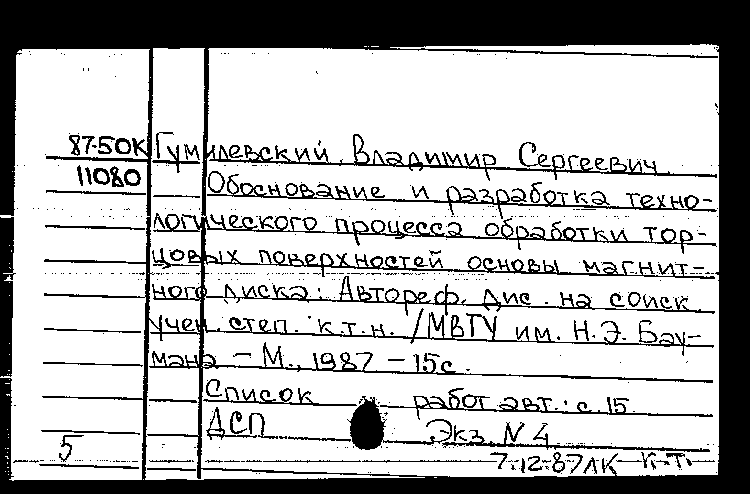 87-50К Гумилевский, Владимир Сергеевич
11080 Обоснование и разработка техно-
логического процесса обработки тор-
цовых поверхностей основы магнит-
ного диска: Автореф. дис. на соиск.
учен. степ. к.т.н. /МВТУ им. Н.Э. Бау-
мана - М., 1987 - 15с.
Список работ авт.: с. 15
ДСП Экз. N 4
5 7.12.87ЛК К.Т.